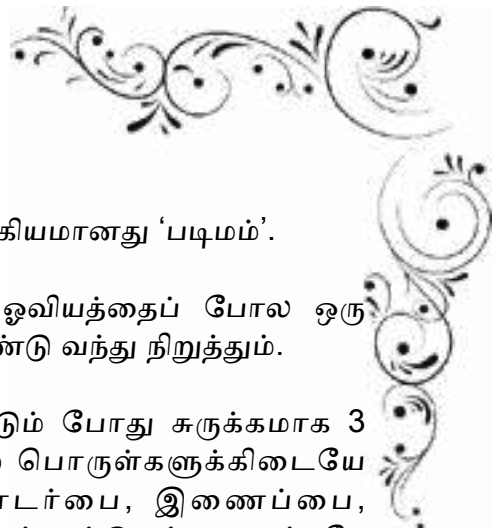 கியமானது ‘படிமம்’.
ஓவியத்தைப் போல ஒரு
ண்டு வந்து நிறுத்தும்.
டும் போது சுருக்கமாக 3
பொருள்களுக்கிடையே
டர்பை, இணைப்பை,